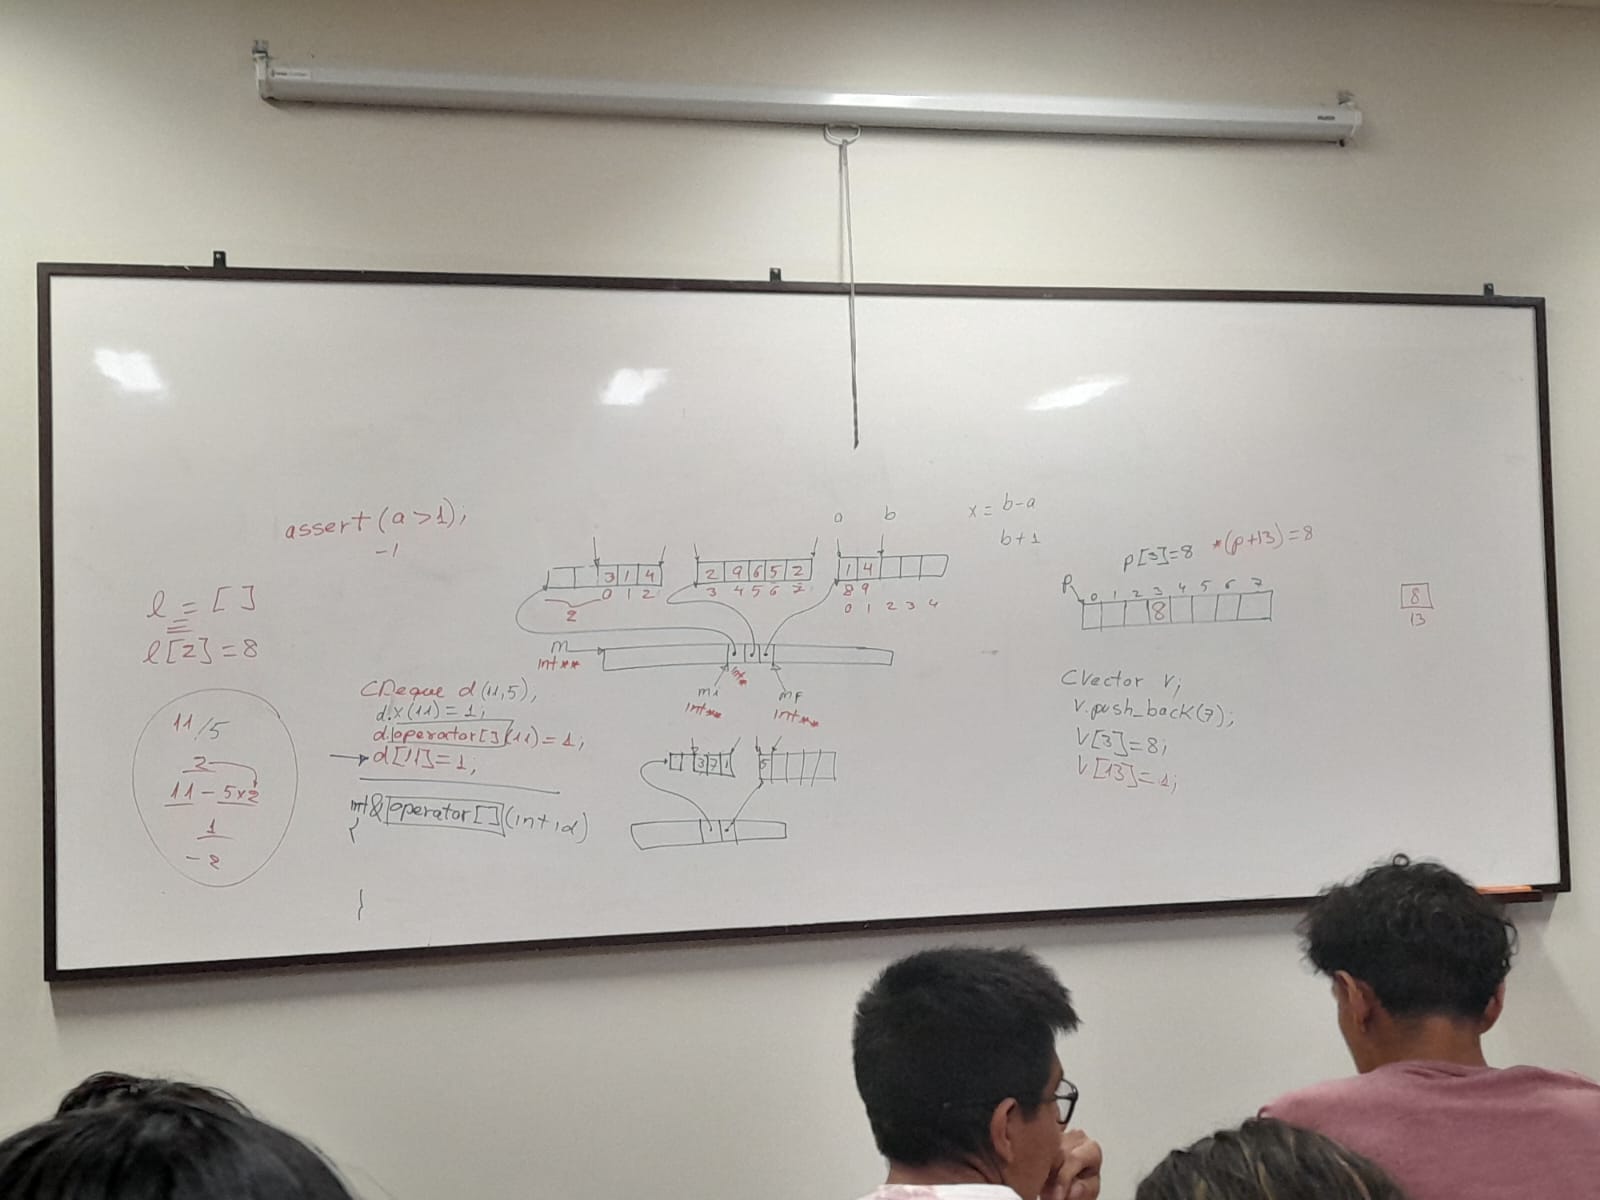 assert(a>1);
-1
l = [ ]
l[2]=8
11/5
2
11 - 5x2
1
-2
CDeque d(11,5),
d.x(11)=1;
d.operator[](11)=1;
d[11]=1;
int& operator[](int id)
{
}
a b
x = b-a
b+1
3 1 4
0 1 2
2
2 9 6 5 2
3 4 5 6 7
1 4
8 9
0 1 2 3 4
m
int**
mi
int**
mf
int**
3 7 1
5
p[3]=8 *(p+13)=8
p
0 1 2 3 4 5 6 7
8
8
13
CVector v;
v.push_back(7);
v[3]=8;
v[13]=1;